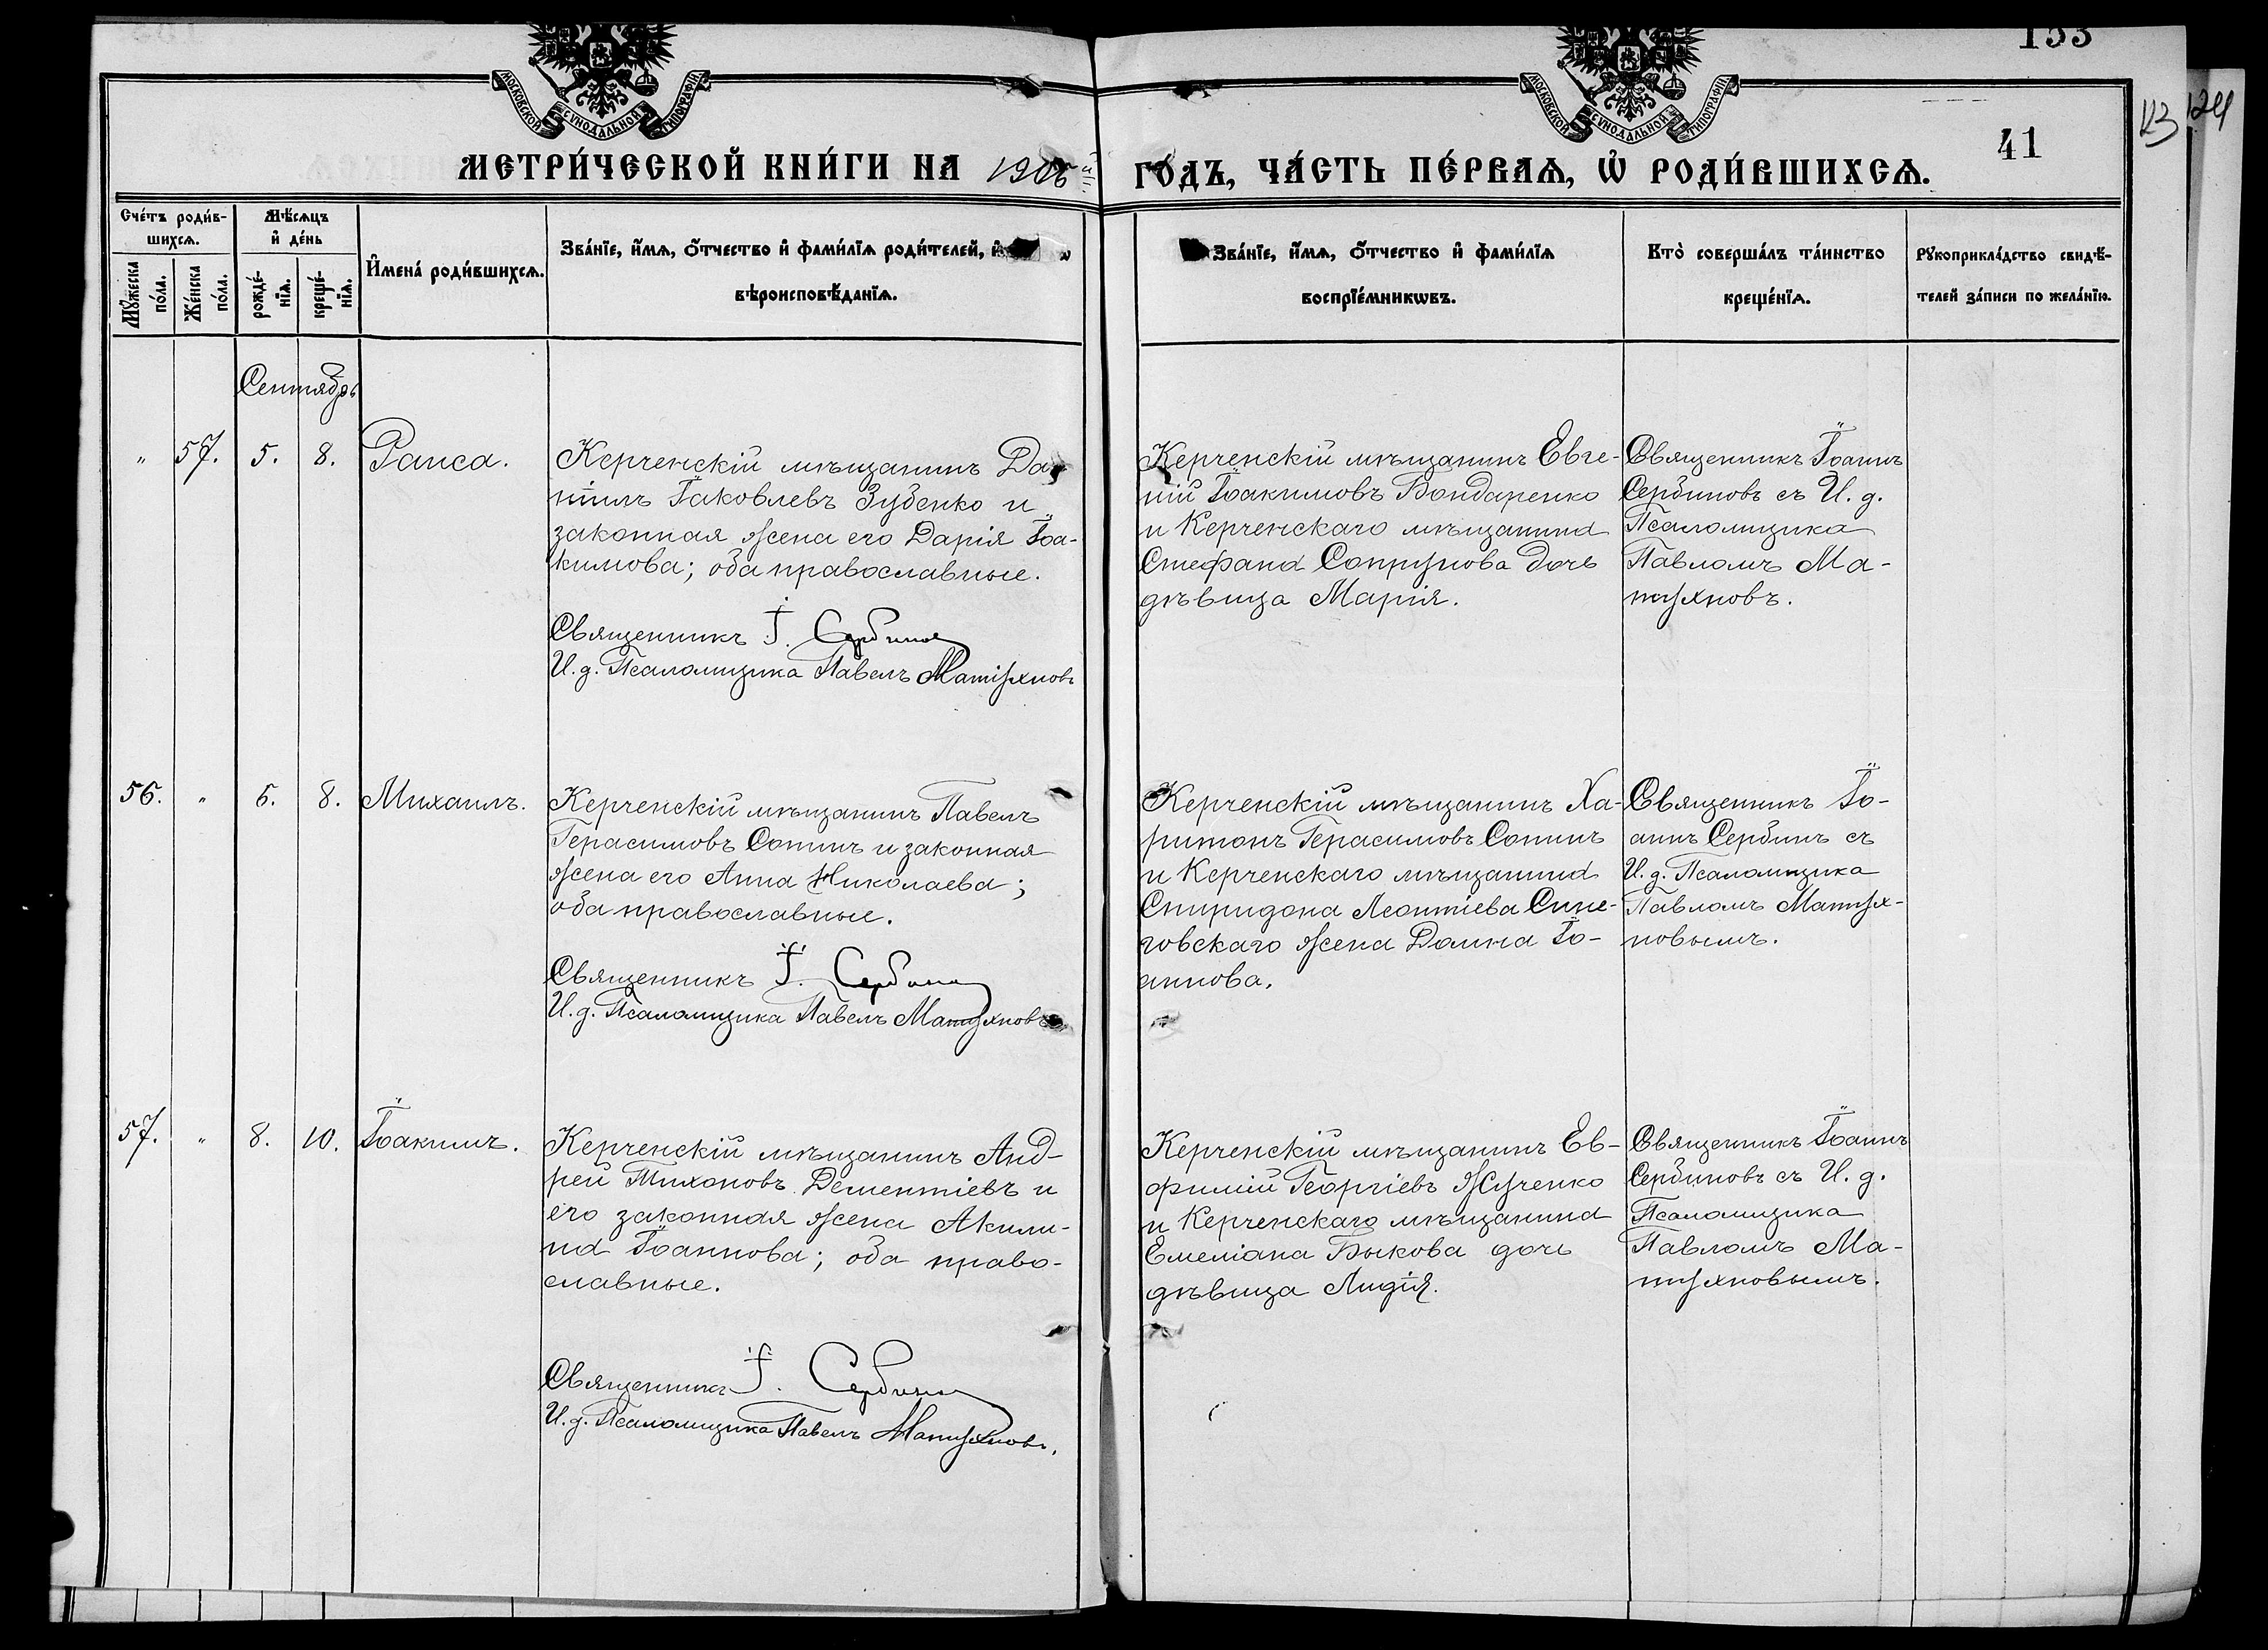 153
123
124
41
МОСКОВСКОЙ СУНОДАЛЬНОЙ ТИПОГРАФІИ
МОСКОВСКОЙ СУНОДАЛЬНОЙ ТИПОГРАФІИ
МЕТРИ́ЧЕСКОЙ КНИ́ГИ НА
ГО́ДЪ, ЧА́СТЬ ПЕ́РВАѦ, Ѡ҆ РОДИ́ВШИХСѦ.
Сче́тъ роди́в-
шихсѧ.
Мꙋ́жеска
по́ла.
Же́нска
по́ла.
Мѣ́сѧцъ
и҆ де́нь
рожде́-
нїѧ.
креще́-
нїѧ.
И҆мена̀ роди́вшихсѧ.
Зва́нїе, и҆́мѧ, ѻ҆́тчество и҆ фами́лїѧ роди́телей, и҆
вѣроисповѣ́данїѧ.
Зва́нїе, и҆́мѧ, ѻ҆́тчество и҆ фами́лїѧ
воспрїе́мникѡвъ.
Кто̀ соверша́лъ та́инство
креще́нїѧ.
Рꙋкоприкла́дство свидѣ́-
телей за́писи по жела́нїю.
Сентябрь
" 57. 5. 8. Раиса.
Керченскій мѣщанинъ Да-
ніилъ Іаковлевъ Зубенко и
законная жена его Дарія Іоа-
кимова; оба православные.
Священникъ І. Сербинов
И. д. Псаломщика Павелъ Матухновъ
Керченскій мѣщанинъ Евге-
ній Іоакимовъ Бондаренко
и Керченскаго мѣщанина
Стефана Сопрунова дочь
дѣвица Марія.
Священникъ Іоаннъ
Сербиновъ съ И. д.
Псаломщика
Павломъ Ма-
тухновъ.
56. " 6. 8. Михаилъ.
Керченскій мѣщанинъ Павелъ
Герасимовъ Сотинъ и законная
жена его Анна Николаева;
оба православные.
Священникъ І. Сербинов
И. д. Псаломщика Павелъ Матухновъ
Керченскій мѣщанинъ Ха-
ритонъ Герасимовъ Сотинъ
и Керченскаго мѣщанина
Спиридона Леонтіева Сине-
говскаго жена Домна Іо-
аннова.
Священникъ Іо-
аннъ Сербинъ съ
И. д. Псаломщика
Павломъ Матух-
новымъ.
57. " 8. 10. Іоакимъ.
Керченскій мѣщанинъ Анд-
рей Тихоновъ Дементіевъ и
его законная жена Акили-
на Іоаннова; оба право-
славные.
Священникъ І. Сербинов
И. д. Псаломщика Павелъ Матухновъ.
Керченскій мѣщанинъ Ев-
фимій Георгіевъ Жученко
и Керченскаго мѣщанина
Емеліана Быкова дочь
дѣвица Лидія.
Священникъ Іоаннъ
Сербиновъ съ И. д.
Псаломщика
Павломъ Ма-
тухновымъ.